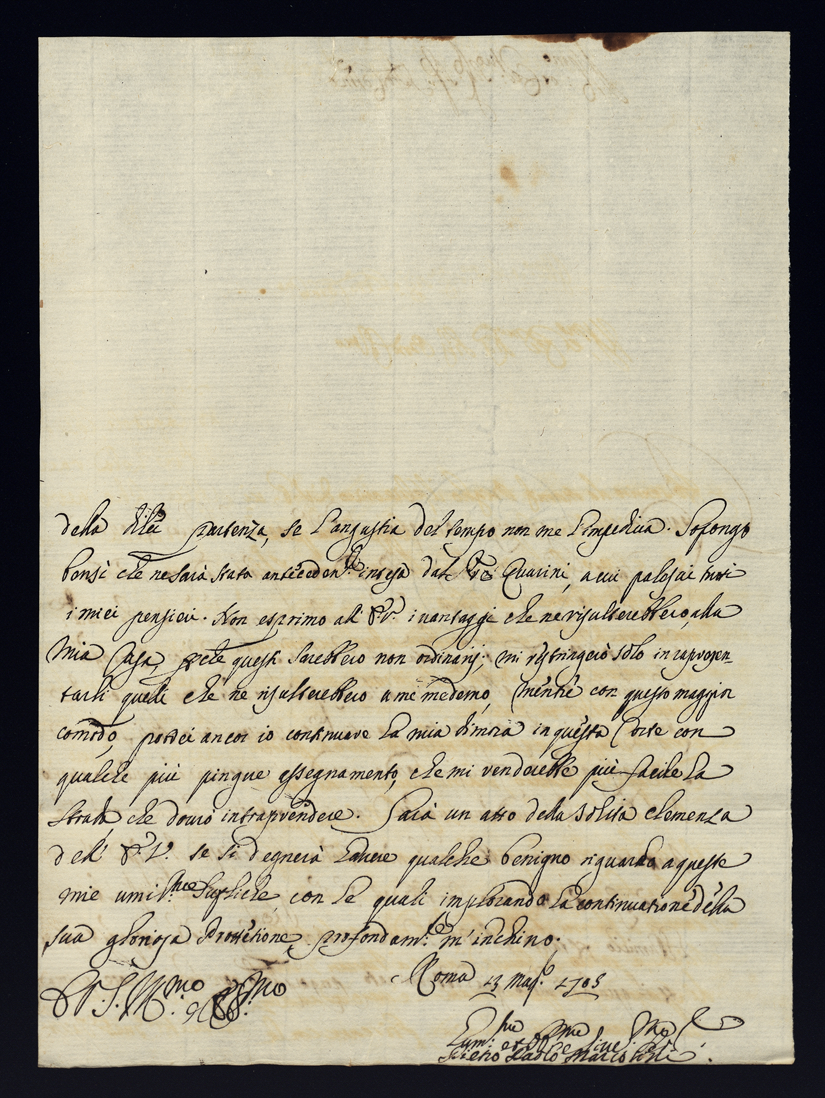 della di lei partenza, se l'angustia del tempo non me l'impediva. Sopongo
bensì che ne sarà stata antecedent.te intesa dal Quarini, a cui palesai tutti
i miei pensieri. Non esprimo all' i vantaggi che ne risulterebbero alla
mia Casa, perche questi sarebbero non ordinarij; mi ristringerò solo in rapresen-
tarli quelli che ne risulterebbero a me medemo, mentre con questo maggior
comodo, potrei ancor io continuare la mia dimora in questa Corte con
qualche più pingue assegnamento, che mi renderebbe più facile la
strada che dovrò intraprendere. Sarà un atto della solita clemenza
dell' se si degnerà havere qualche benigno riguardo a queste
mie umi.me supliche, con le quali implorando la continuatione della
sua gloriosa Protetione, profondam.te m'inchino.
Roma 23 Mag.o 1705